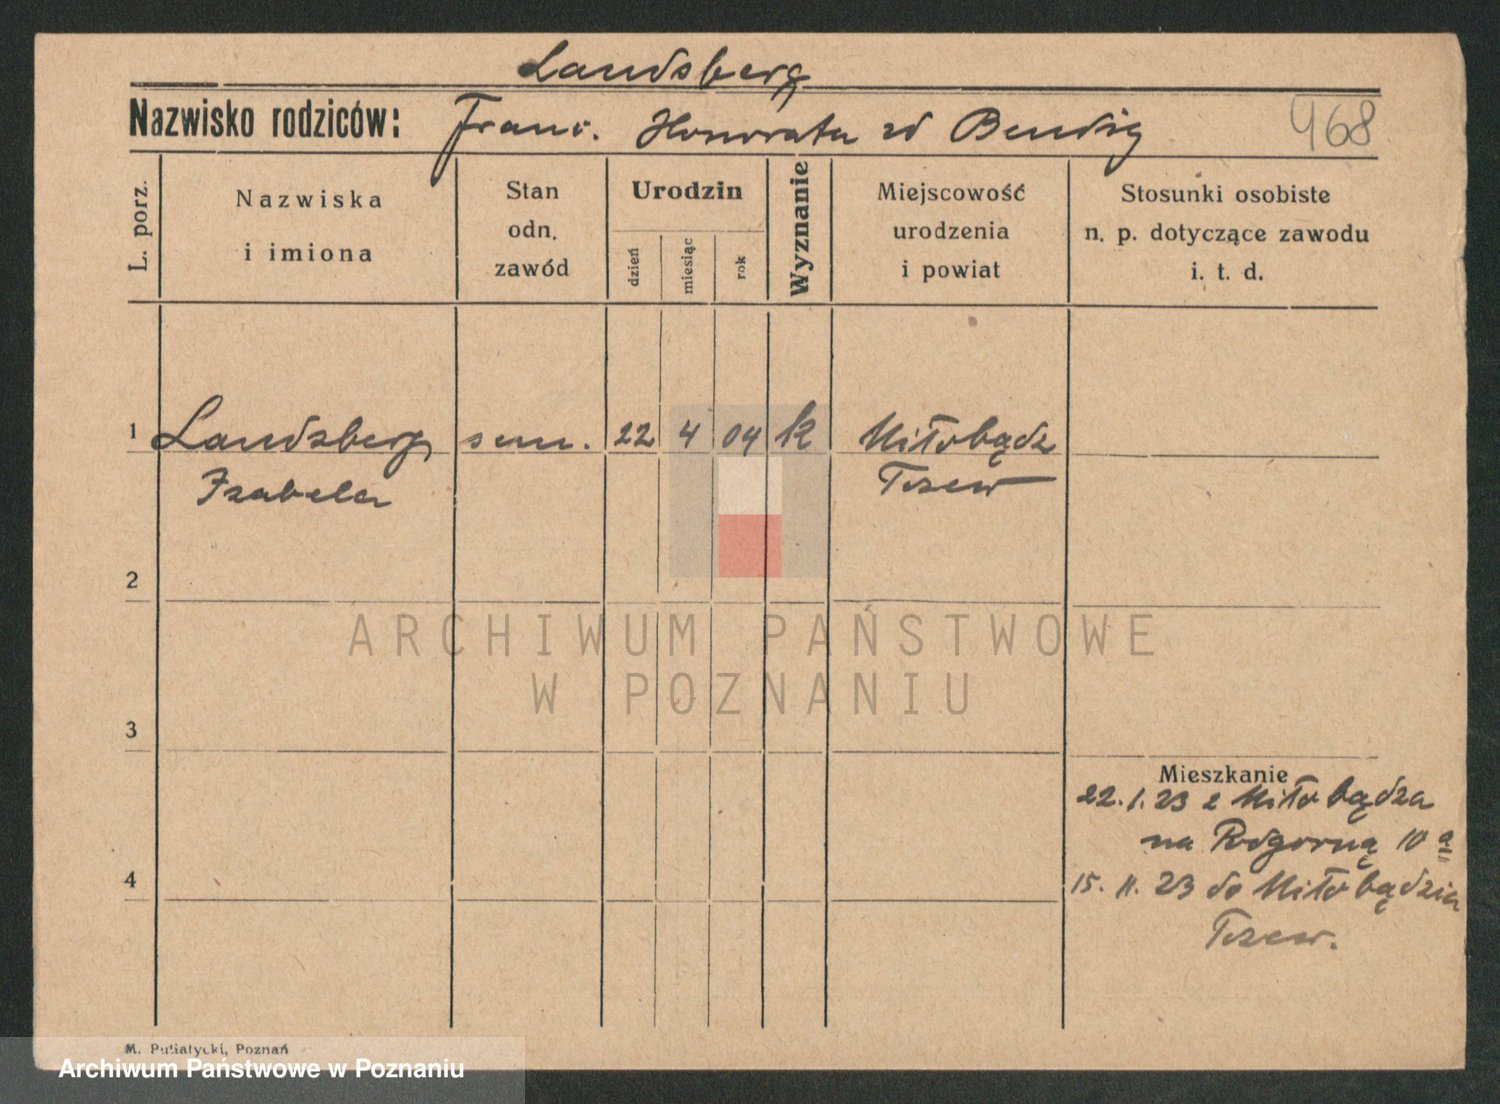 Landsberg
Nazwisko rodziców: Franc. Honorata zd Bendig
968
L. porz.
Nazwiska
i imiona
Stan
odn.
zawód
Urodzin
dzień
miesiąc
rok
Wyznanie
Miejscowość
urodzenia
i powiat
Stosunki osobiste
n. p. dotyczące zawodu
i. t. d.
1 Landsberg sem. 22 4 04 k Miłobądz
Izabela Tczew
2
ARCHIWUM PAŃSTWOWE
W POZNANIU
3
Mieszkanie
22.1.23 z Miłobądza
na Podgórną 10 a
4
15. II. 23 do Miłobądzia
Tczew.
M. Putiatycki, Poznań
Archiwum Państwowe w Poznaniu